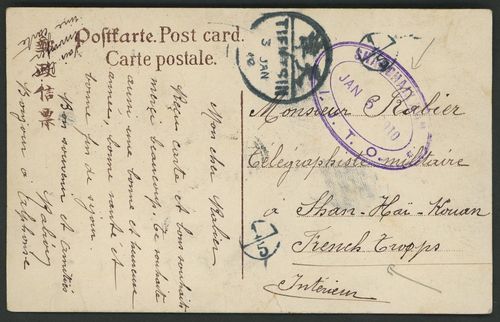 Postkarte. Post card.
Carte postale.
郵政信票
TIENTSIN
3 JAN
10
SHANHAI
JAN 6
1910
I. T. O.
Mon cher Kalier
Reçu carte et bons souhaits
merci beaucoup. Te souhaite
aussi une bonne et heureuse
année, bonne santé et
bonne fin de séjour.
Bon souvenir et amitiés
Bonjour à Alphonse
Monsieur Kalier
Télégraphiste militaire
à Shan-Haï-Kouan
French Troops
Intérieur